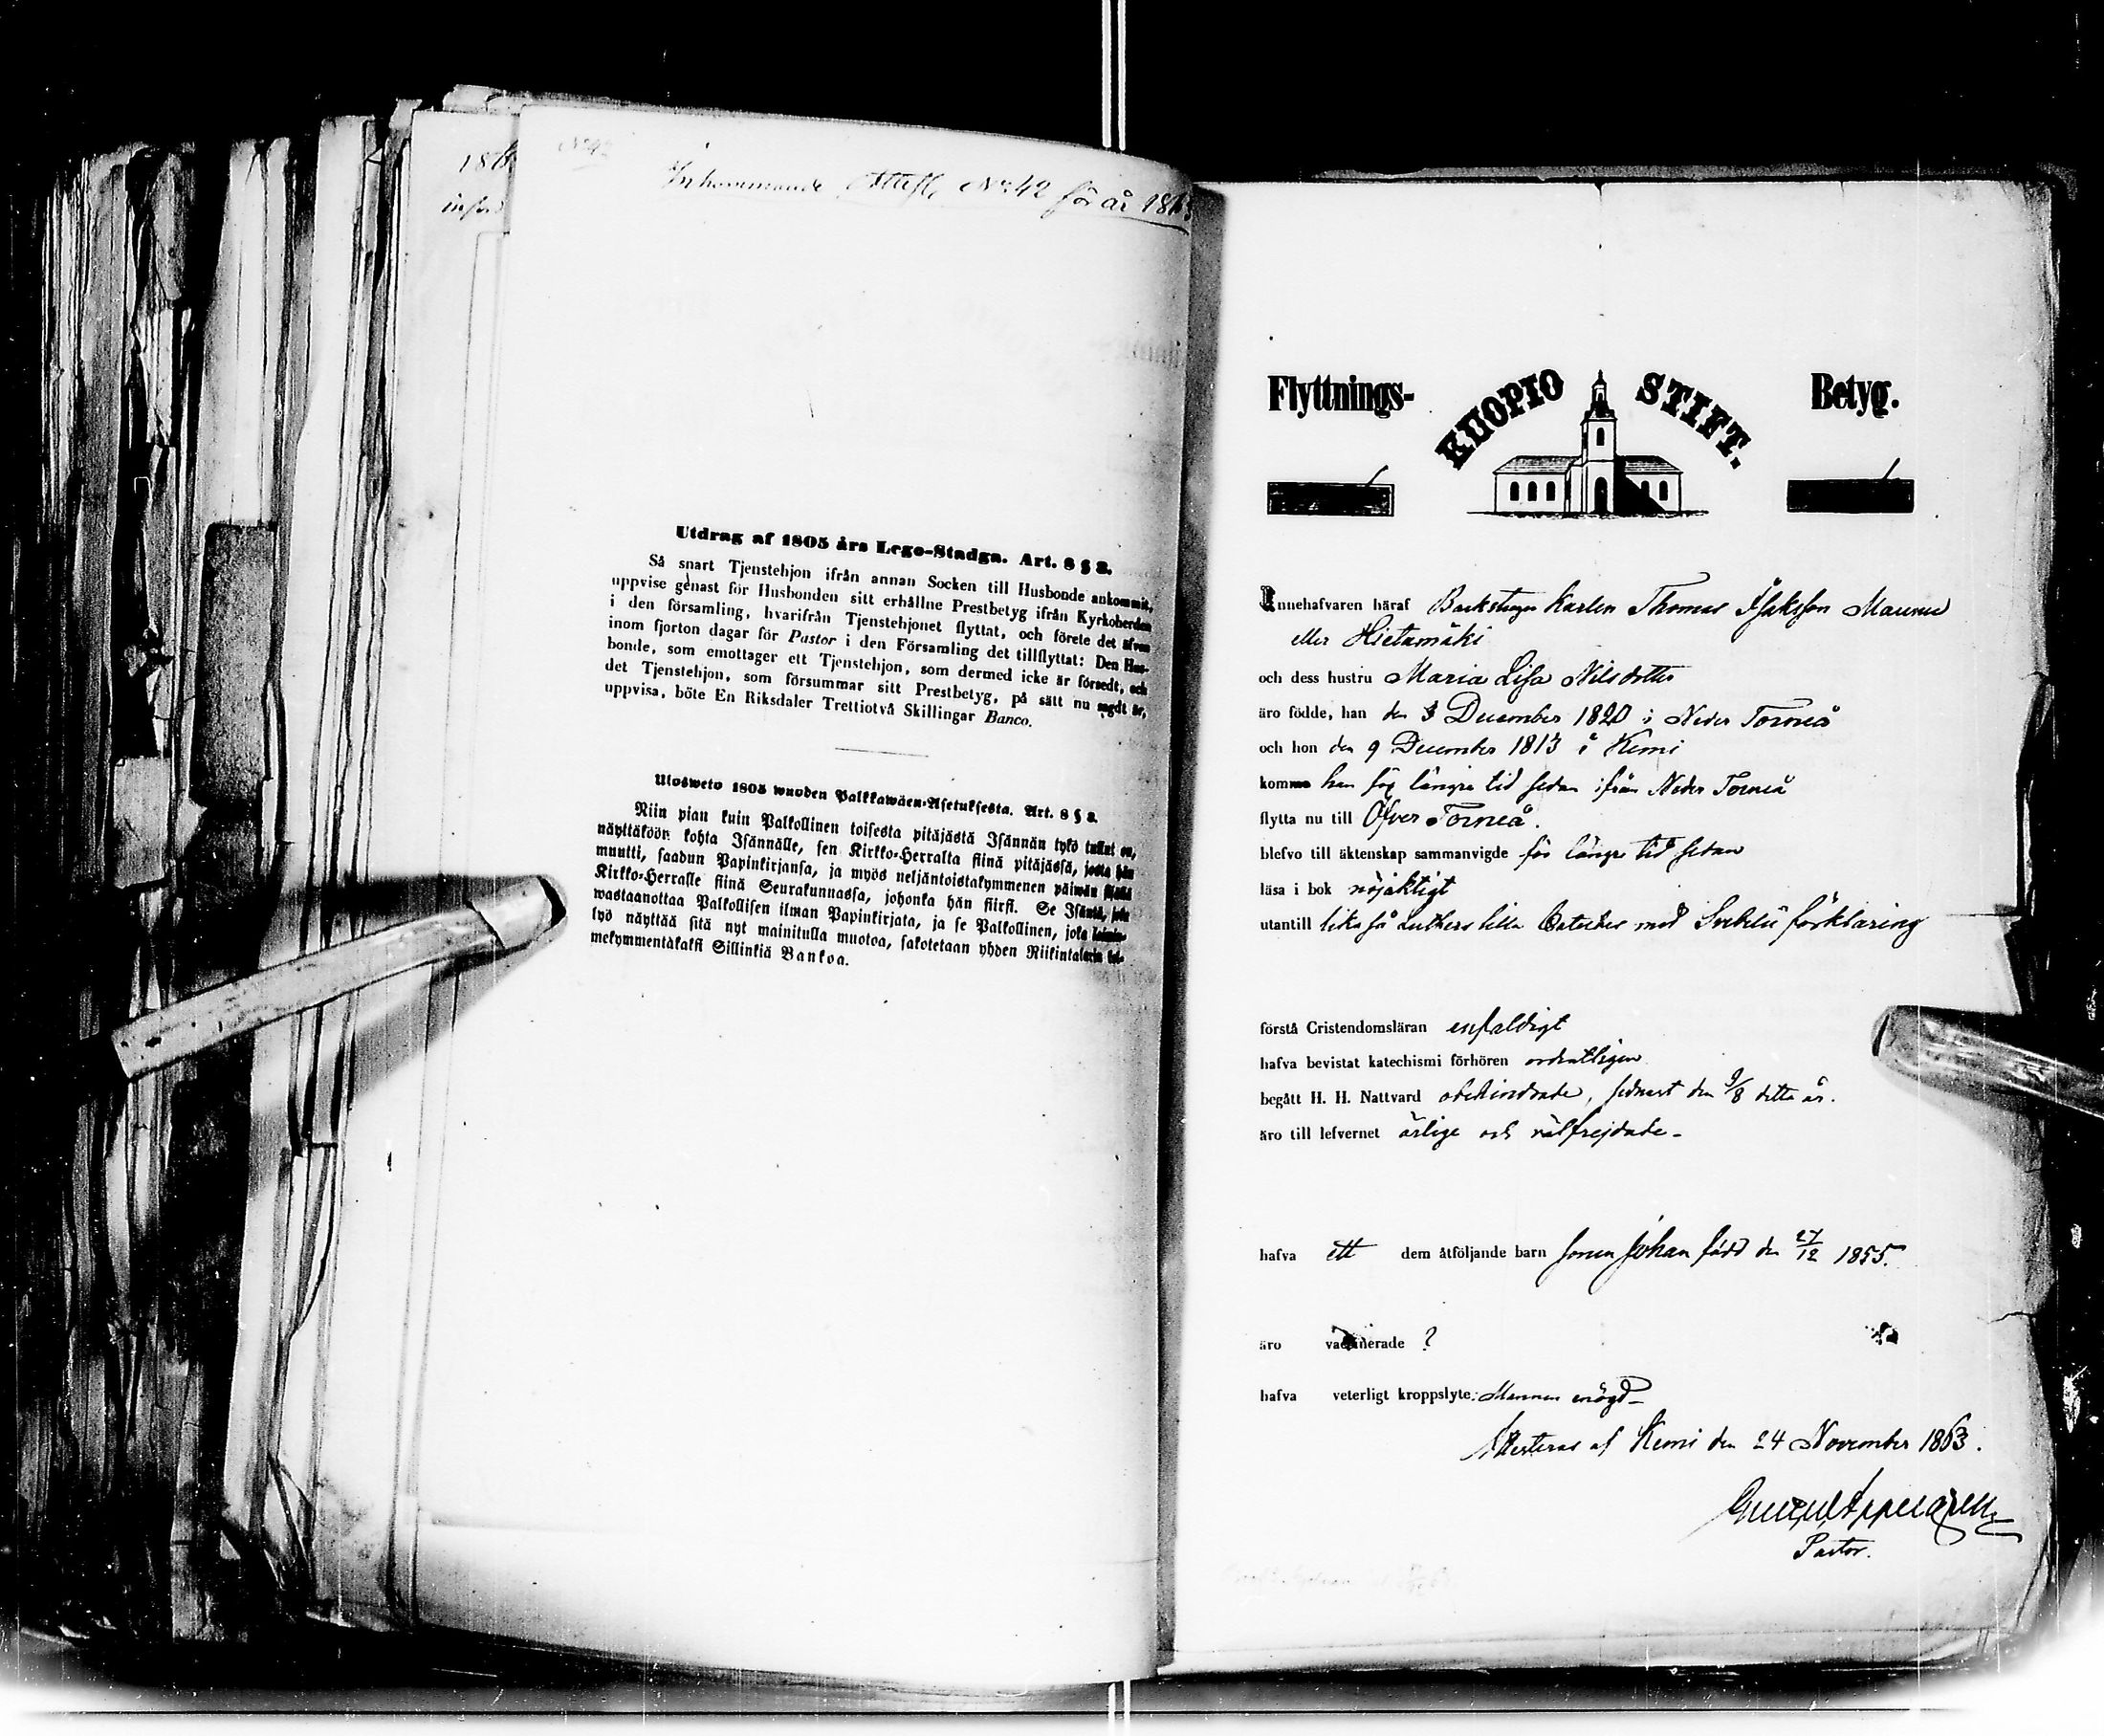 1863
införd
No 42
Inkommande Attest, No 42 för år 1863
Utdrag af 1805 års Lego-Stadga. Art. 8 § 3.
Så snart Tjenstehjon ifrån annan Socken till Husbonde ankommit,
uppvise genast för Husbonden sitt erhållne Prestbetyg ifrån Kyrkoherden
i den församling, hvarifrån Tjenstehjonet flyttat, och förete det äfven
inom fjorton dagar för Pastor i den Församling det tillflyttat: Den Hus-
bonde, som emottager ett Tjenstehjon, som dermed icke är försedt, och
det Tjenstehjon, som försummar sitt Prestbetyg, på sätt nu sagdt är,
uppvisa, böte En Riksdaler Trettiotvå Skillingar Banco.
Ulosweto 1805 wuoden Palkkawäen-Asetuksesta. Art. 8 § 3.
Niin pian kuin Palkollinen toisesta pitäjästä Isännän tykö tullut on,
näyttäköön kohta Isännälle, sen Kirkko-Herralta siinä pitäjässä, josta hän
muutti, saadun Papinkirjansa, ja myös neljäntoistakymmenen päiwän sisällä
Kirkko-Herralle siinä Seurakunnassa, johonka hän siirsi. Se Isäntä, joka
wastaanottaa Palkollisen ilman Papinkirjata, ja se Palkollinen, joka laimin-
lyö näyttää sitä nyt mainitulla muotoa, sakotetaan yhden Riikintalarin kol-
mekymmentäkaksi Sillinkiä Bankoa.
Flyttnings- KUOPIO STIFT. Betyg.
Innehafvaren häraf Backstugu Karlen Thomas Isaksson Maunu
eller Hietamäki
och dess hustru Maria Lisa Nilsdotter
äro födde, han den 3 December 1820 i Neder Torneå
och hon den 9 December 1813 i Kemi
komme han för längre tid sedan ifrån Neder Torneå
flytta nu till Öfver Torneå.
blefvo till äktenskap sammanvigde för längre tid sedan
läsa i bok nöjaktigt
utantill lika så Luthers lilla Cateches med Svebelii förklaring
förstå Cristendomsläran enfaldigt
hafva bevistat katechismi förhören ordentligen
begått H. H. Nattvard obehindrade, sednast den 9/8 detta år.
äro till lefvernet ärlige och välfrejdade-
hafva ett dem åtföljande barn sonen Johan född den 27/12 1855.
äro vaccinerade ?
hafva veterligt kroppslyte: Mannen enögd-
Attesteras af Kemi den 24 November 1863.
Pastor.